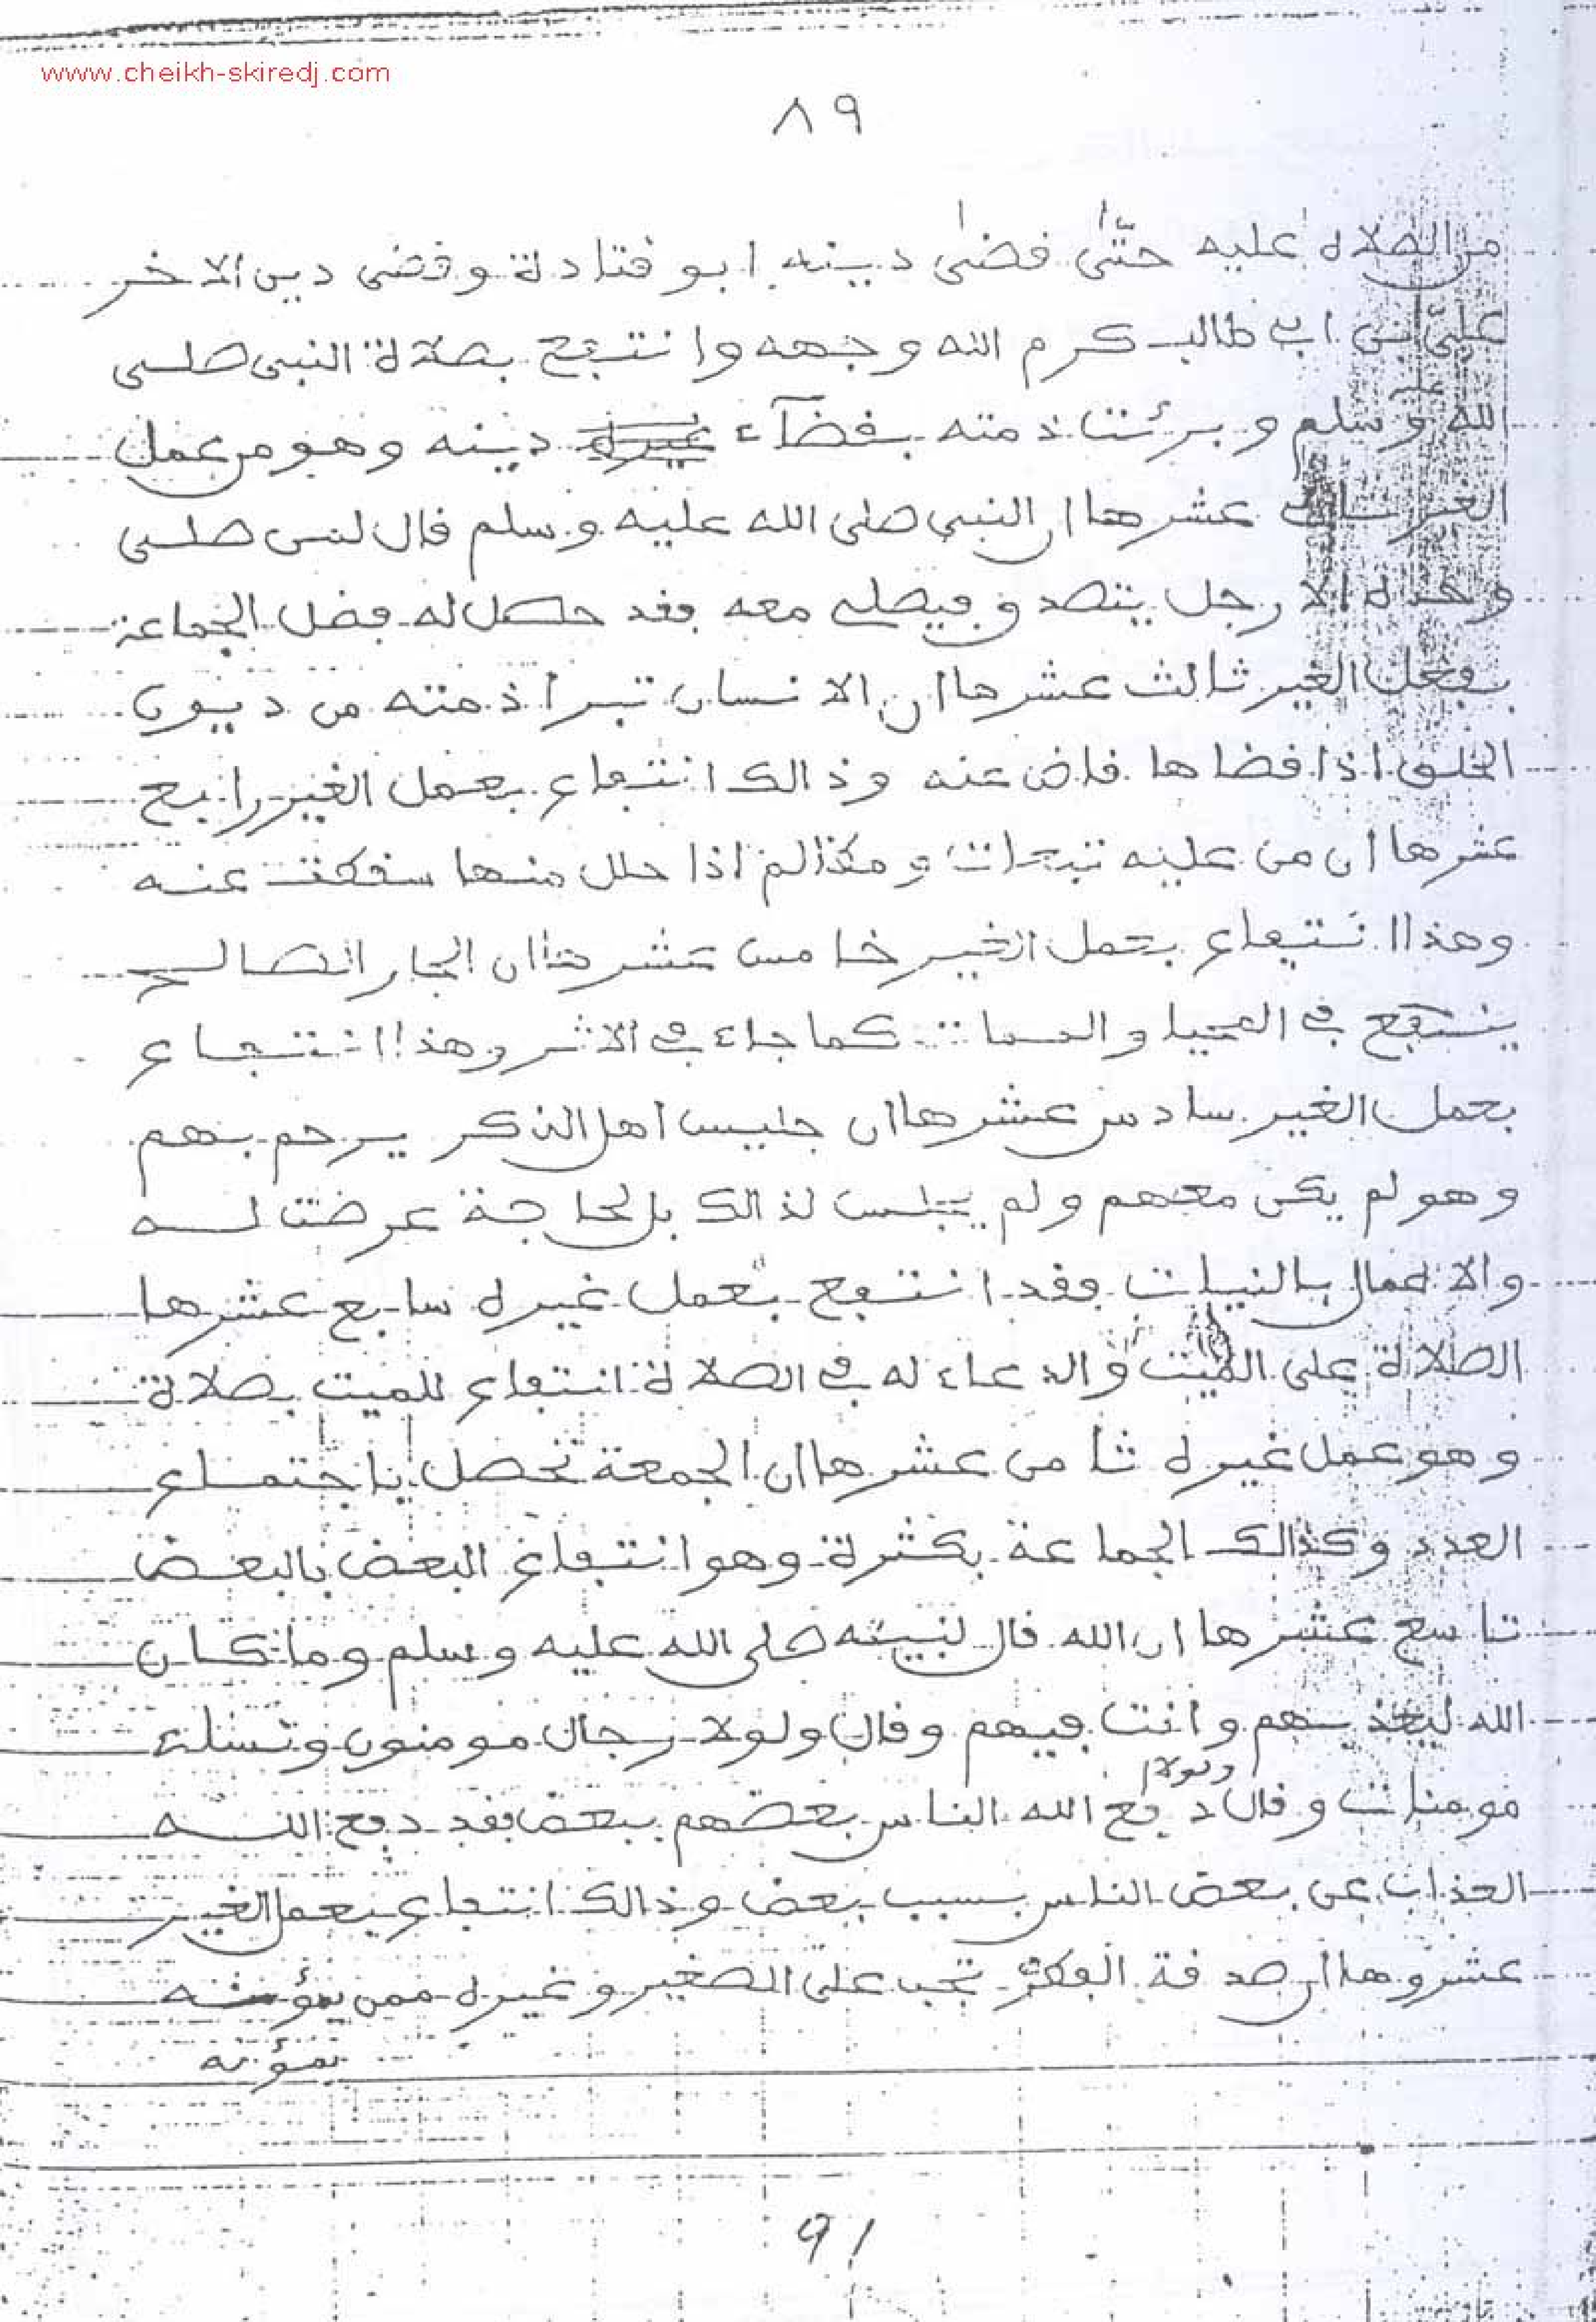 www.cheikh-skiredj.com
٨٩
من الصلاة عليه حتى قضى دينه ابو قتادة وقضى دين الاخر
علي بن ابي طالب كرم الله وجهه وانتفع بصلاة النبي صلى
الله عليه وسلم وبرئت ذمته بقضآء دينه وهو من عمل
الغير عشرها ان النبي صلى الله عليه وسلم قال لمن صلى
وحده الا رجل يتصدق فيصلي معه فقد حصل له فضل الجماعة
بفعل الغير ثالث عشرها ان الانسان تبرا ذمته من ديون
الخلق اذا قضاها قاض عنه وذالك انتفاع بعمل الغير رابع
عشرها ان من عليه تبعات ومظالم اذا حلل منها سقطت عنه
وهذا انتفاع بعمل الغير خامس عشرها ان الجار الصالح
ينتفع في المحيا والممات كما جاء في الاثر وهذا انتفاع
بعمل الغير سادس عشرها ان جليس اهل الذكر يرحم بهم
وهو لم يكن معهم ولم يجلس لذالك بل لحاجة عرضت له
والاعمال بالنيات فقد انتفع بعمل غيره سابع عشرها
الصلاة على الميت والدعاء له في الصلاة انتفاع للميت بصلاة
وهو عمل غيره ثامن عشرها ان الجمعة تحصل باجتماع
العدد وكذالك الجماعة بكثرة وهو انتفاع البعض بالبعض
تاسع عشرها ان الله قال لنبيئه صلى الله عليه وسلم وما كان
الله ليعذبهم وانت فيهم وقال ولولا رجال مومنون ونساء
مومنات وقال ولولا دفع الله الناس بعضهم ببعض فقد دفع الله
العذاب عن بعض الناس بسبب بعض وذالك انتفاع بعمل الغير
عشروها ان صدقة الفطر تجب على الصغير وغيره ممن يمؤنه
يمؤنه
91